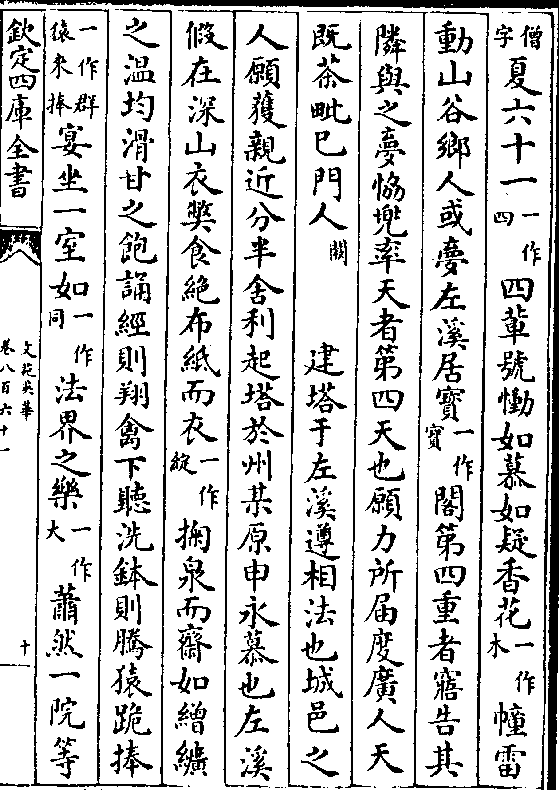 僧字夏六十一一作四四輩號慟如慕如疑香花一作木幢雷
動山谷鄉人或夢左溪居寳一作寶閣第四重者寤告其
隣與之夢恊兜率天者第四天也願力所届度廣人天
既荼毗已門人闕建塔于左溪遵相法也城邑之
人願獲親近分半舍利起塔於州某原申永慕也左溪
假在深山衣弊食絶布紙而衣一作綻掬泉而齋如繒纊
之温均滑甘之飽誦經則翔禽下聽洗鉢則騰猿跪捧
一作群猿来捧宴坐一室如一作同法界之樂一作大蕭然一院等
欽定四庫全書
文苑英華
卷八百六十一
十